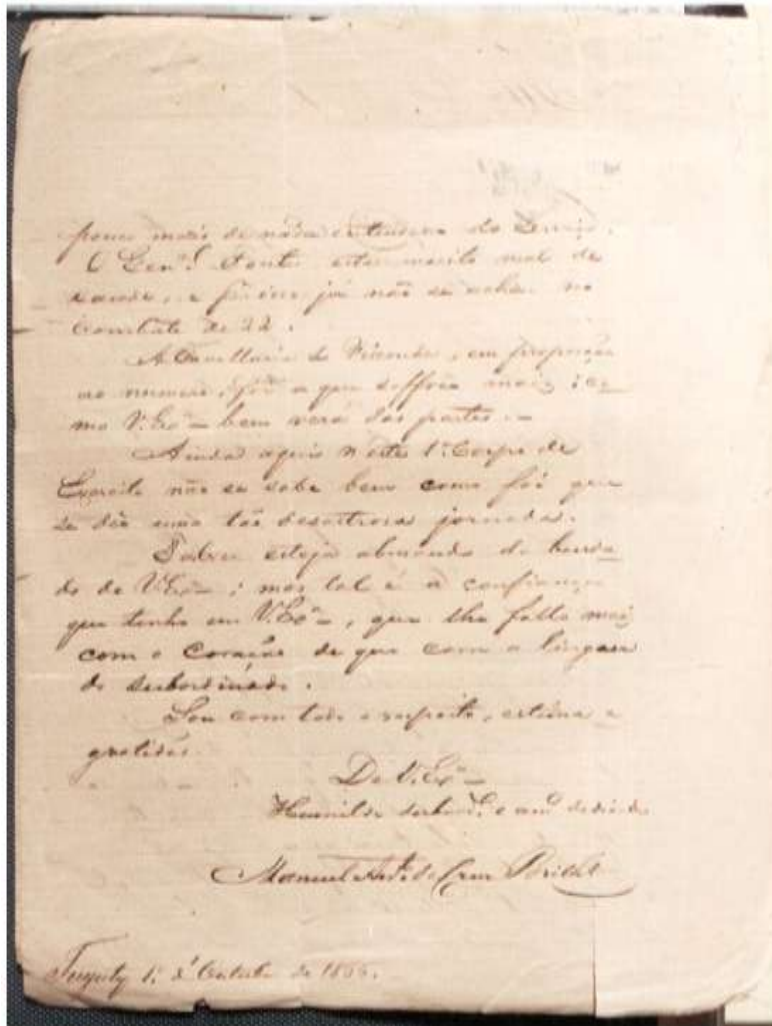 pouco mais de nada entendem do Serviço.
O Gen.al Fontes estava muito mal de
saude, e por isso já não se achou no
Combate de 22.
A Cavallaria do Visconde, em proporção
ao numero, foi a que soffreu mais; co-
mo V. Ex.a bem verá das partes. -
Ainda aqui n'este 1º Corpo de
Exercito não se sabe bem como foi que
se deo uma tão desastrosa jornada.
Talvez esteja abusando da bonda-
de de V. Ex.a; mas tal é a confiança
que tenho em V. Ex.a, que lhe fallo mais
com o Coração do que com a lingoa
do subordinado.
Sou com todo o respeito, estima e
gratidão.
De V. Ex.a
Humilde subord.o e am.o dedicado
Manuel da Cruz Brilh
Tuyuty 1º d'Outubro de 1866.